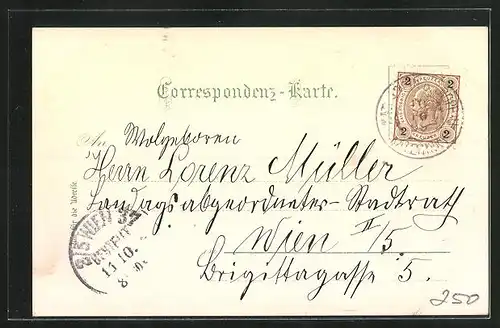 Correspondenz-Karte.
2 2
2 2
An Wolgeboren
Herrn Lorenz Müller
Landagsabgeordneter-Stadtrath
Wien II/5.
Brigittagasse 5.
für die Adresse
WIEN
13 10.
8
250